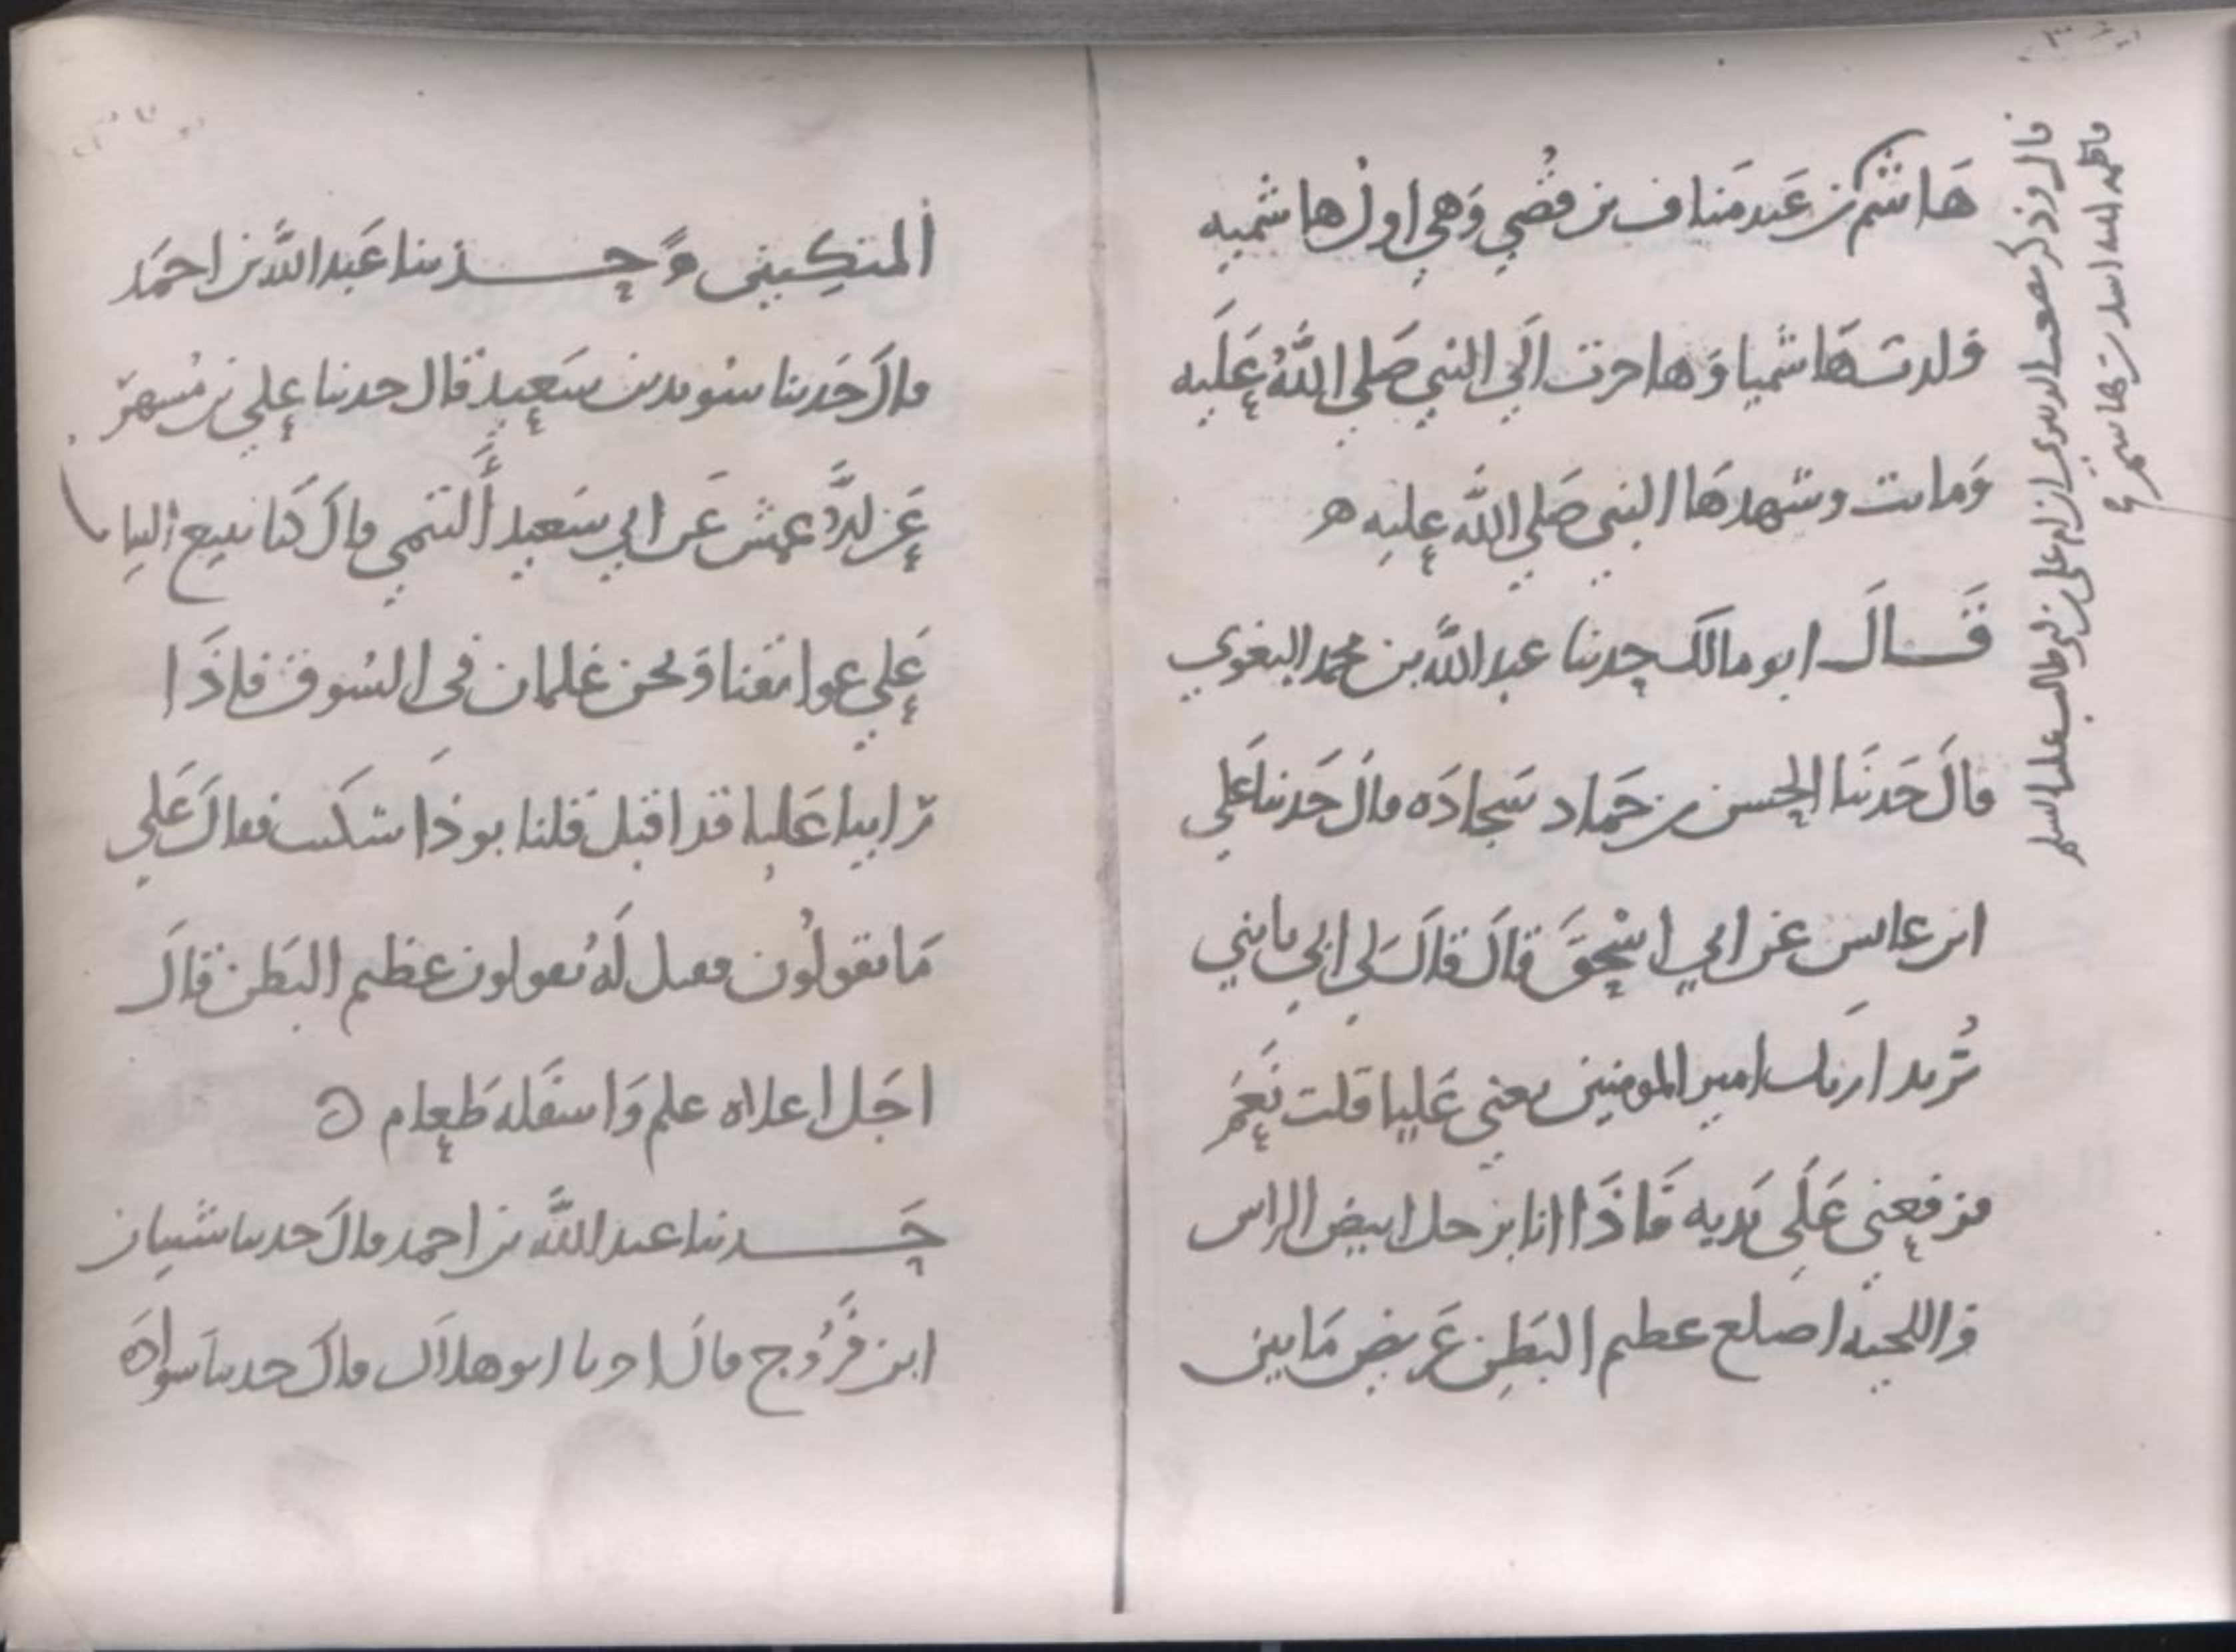 هَاشم بن عَبد مَناف بن قُصَي وَهي اول هاشميه
ولدت هَاشميا وَهاجرت الَي النبي صَلي اللهُ عَلَيه
وَماتت وشهدهَا النبي صَلي الله عليه
قَــالَ ابو مالك حدثنا عبد الله بن محمد البغوي
قالَ حَدثنَا الحسن بن حَماد سَجادَه قالَ حَدثنا عَلي
ابن عابس عن ابي اسْحقَ قالَ قالَ لي ابي يا بني
تُريد ان اريك امير المومنين يعني عَليا قلت نَعَم
فرفعني عَلَي يَديه فَاذَا انا برجل ابيض الراس
واللحيه اصلع عظيم البَطن عَريض مَا بين
المنكبين وَحــدثنا عَبد الله بن احمَد
قالَ حَدثنا سُويد بن سَعيد قال حدثنا علي بن مُسهر
عَن الاعمش عَن ابي سَعيد التيمي قالَ كنا نبيع الثياب
عَلي عواتقنا وَنحن غلمان في السُوق فاذَا
راينا عَليا قد اقبل قلنا بوذَا شكنب فقالَ عَلي
مَا تقولُون فقيل لَهُ يقولون عظيم البَطن قالَ
اجَل اعلاه علم وَاسفَله طَعام
حَــدثنا عبد الله بن احمد قالَ حدثنا شيبان
ابن فَرُوج قالَ ابو هلال قالَ حدثنا سوادَه
قال وذكر مصعب الزبيري ان ام علي بن ابي طالب عليه السلم
فاطمه ابنه اسد بن هاشم